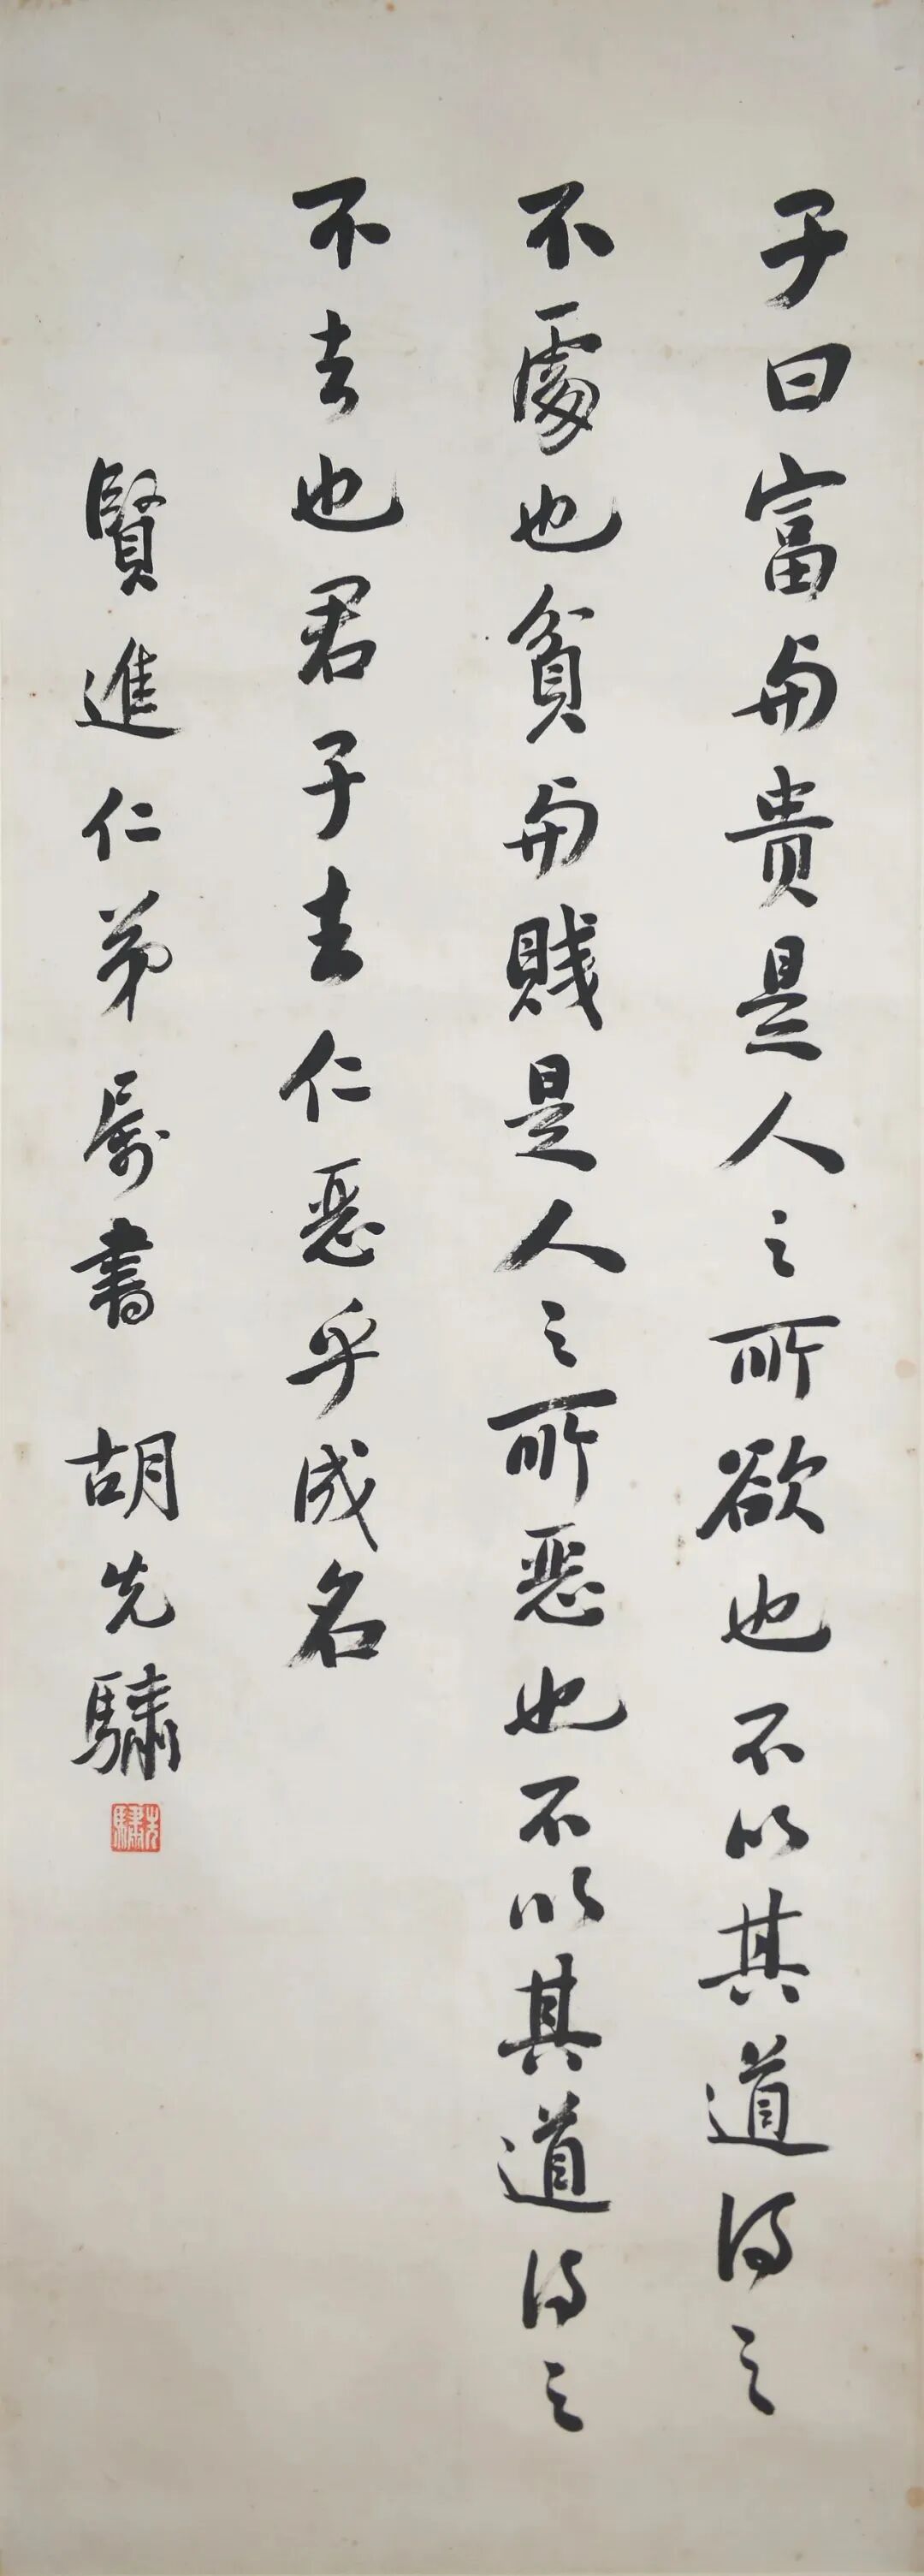 子曰富與貴是人之所欲也不以其道得之
不處也貧與賤是人之所惡也不以其道得之
不去也君子去仁惡乎成名
賢進仁弟屬書 胡先驌
先驌